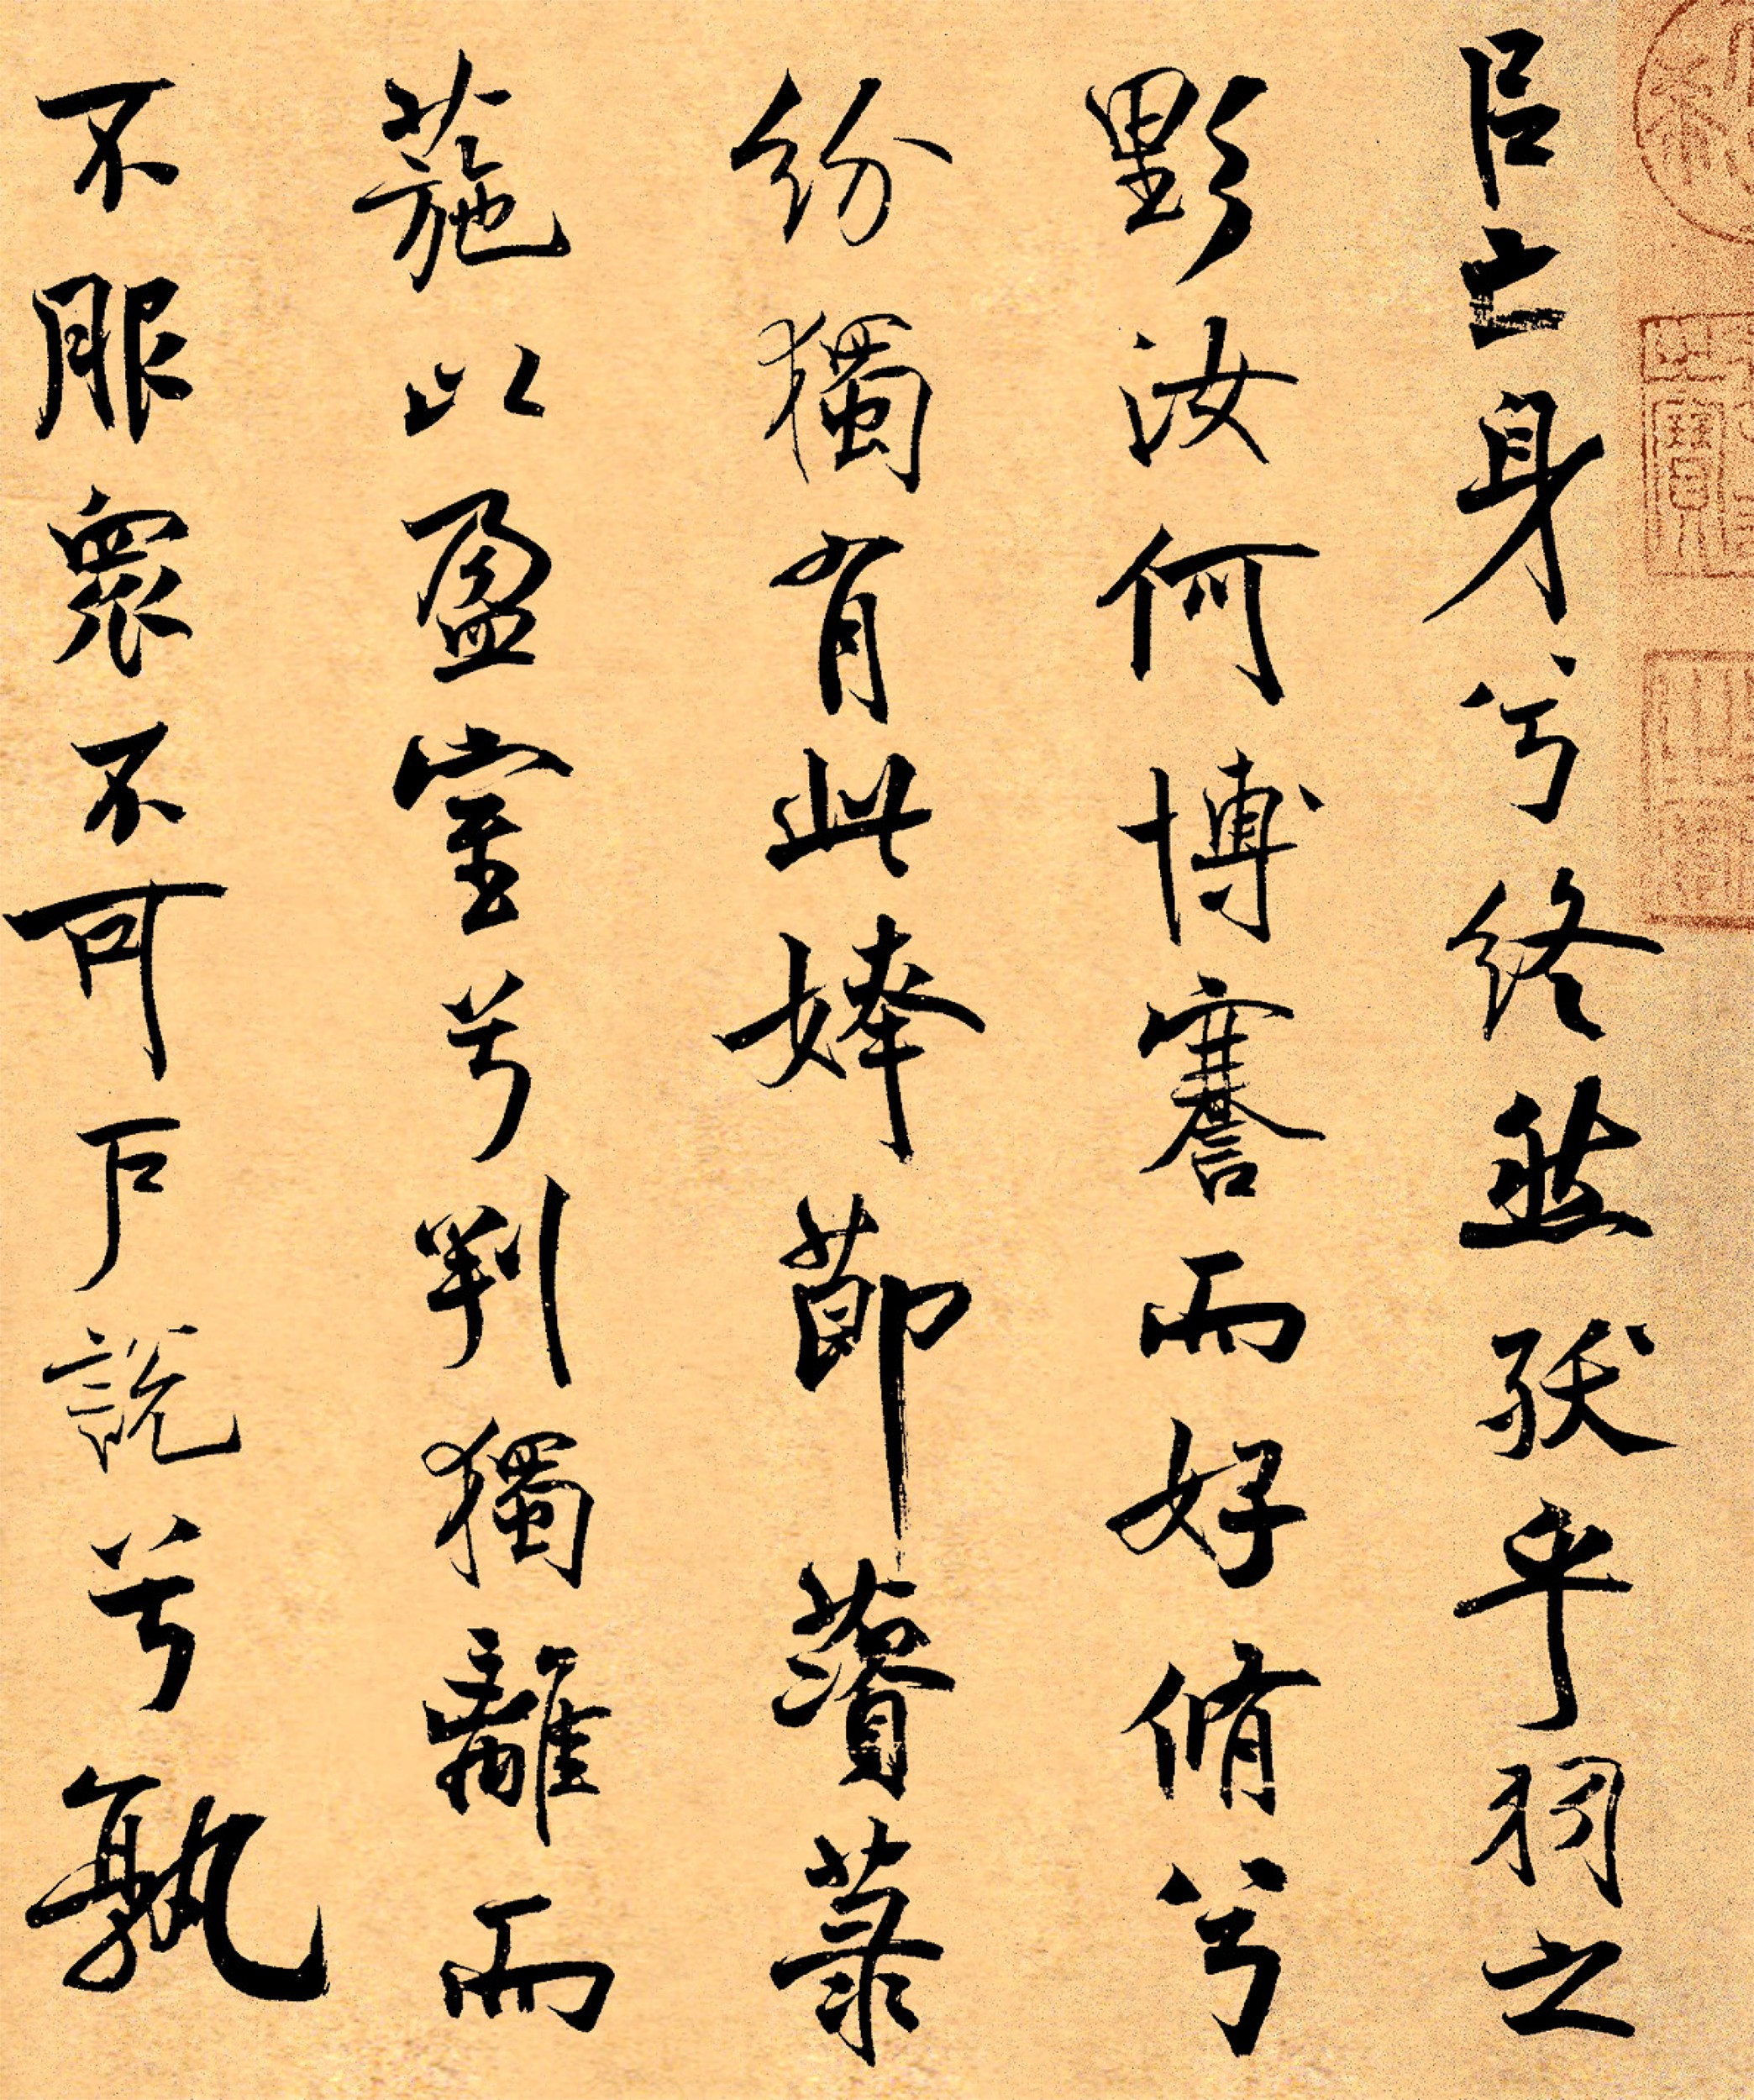 㠯亡身兮終然殀乎羽之
野汝何博謇而好脩兮
紛獨有此姱節薋菉
葹以盈室兮判獨離而
不服眾不可戶說兮孰